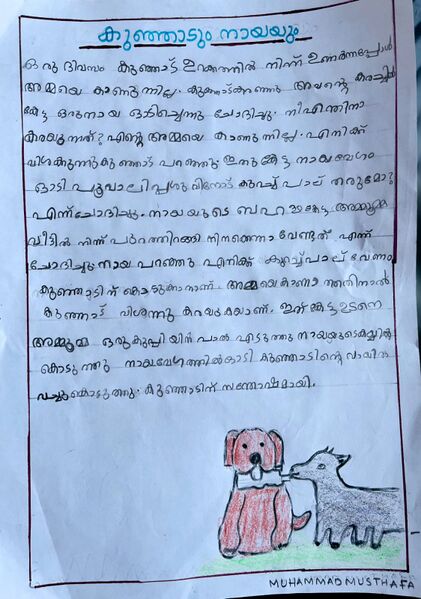 കുഞ്ഞാടും നായയും
ഒരു ദിവസം കുഞ്ഞാട് ഉറക്കത്തിൽ നിന്ന് ഉണർന്നപ്പോൾ
അമ്മയെ കാണുന്നില്ല. കുഞ്ഞാട് കരഞ്ഞു അവന്റെ കരച്ചിൽ
കേട്ട ഒരുനായ ഓടിച്ചെന്നു ചോദിച്ചു. നീഎന്തിനാ
കരയുന്നത്? എന്റെ അമ്മയെ കാണുന്നില്ല. എനിക്ക്
വിശക്കുന്നു കുഞ്ഞാട് പറഞ്ഞു. ഇതു കേട്ട നായ വേഗം
ഓടി പൂവാലിപ്പശുവിനോട് കുറച്ച് പാല് തരുമോ?
എന്ന് ചോദിച്ചു. നായയുടെ ബഹളം കേട്ട അമ്മൂമ്മ
വീട്ടിൽ നിന്ന് പുറത്തിറങ്ങി നിനക്കെന്നാ വേണ്ടത് എന്ന്
ചോദിച്ചു. നായ പറഞ്ഞു എനിക്ക് കുറച്ച് പാല് വേണം
കുഞ്ഞാടിന് കൊടുക്കാനാണ്. അമ്മയെ കാണാത്തതിനാൽ
കുഞ്ഞാട് വിശന്നു കരയുകയാണ്. ഇത് കേട്ട ഉടനെ
അമ്മൂമ്മ ഒരു കുപ്പിയിൽ പാൽ എടുത്തു നായയുടെ കയ്യിൽ
കൊടുത്തു നായ വേഗത്തിൽ ഓടി കുഞ്ഞാടിന്റെ വായിൽ
വച്ചുകൊടുത്തു. കുഞ്ഞാടിന് സന്തോഷമായി.
MUHAMMAD MUSTHAFA